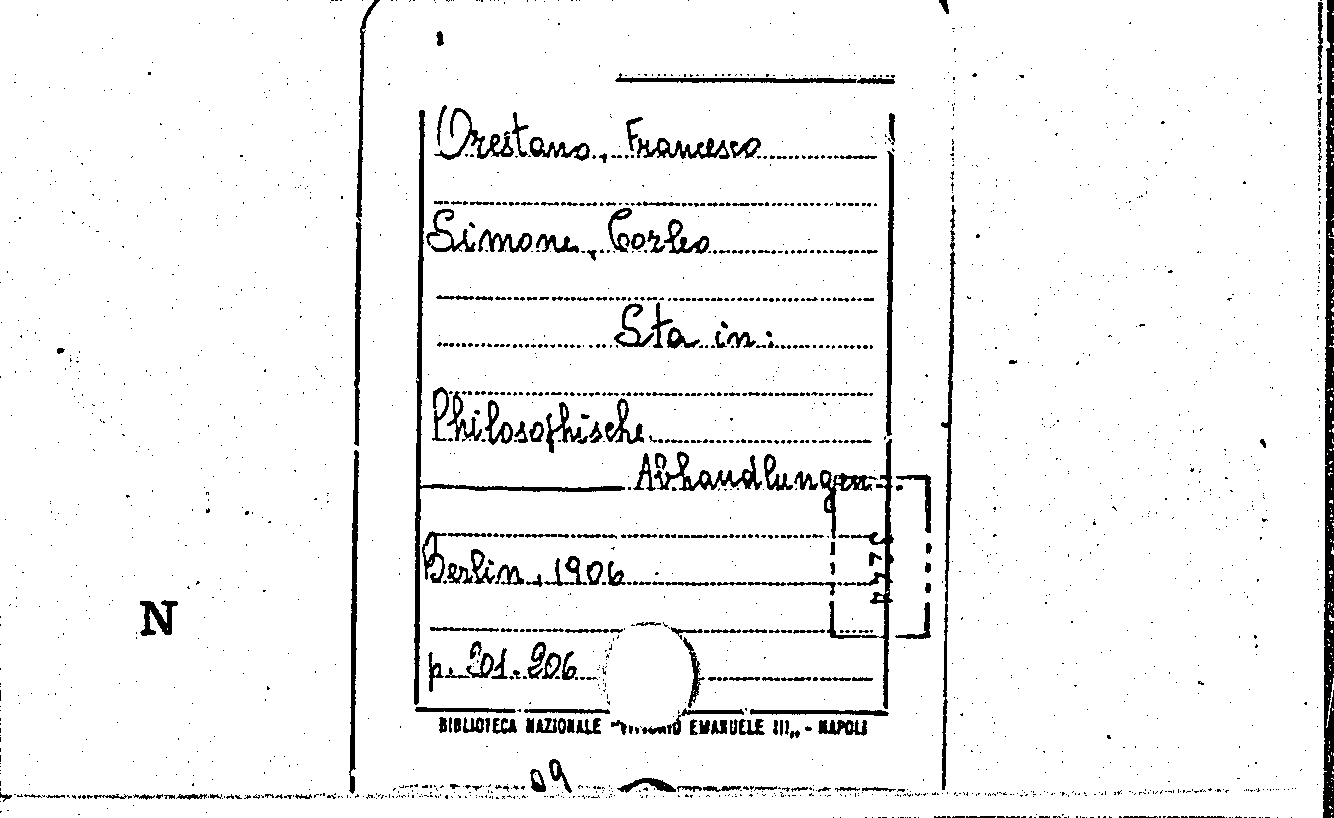 Orestano, Francesco
Simone, Corleo
Sta in:
Philosophische
Abhandlungen
Berlin, 1906
N
p. 201-206
BIBLIOTECA NAZIONALE "VITTORIO EMANUELE III" - NAPOLI
09